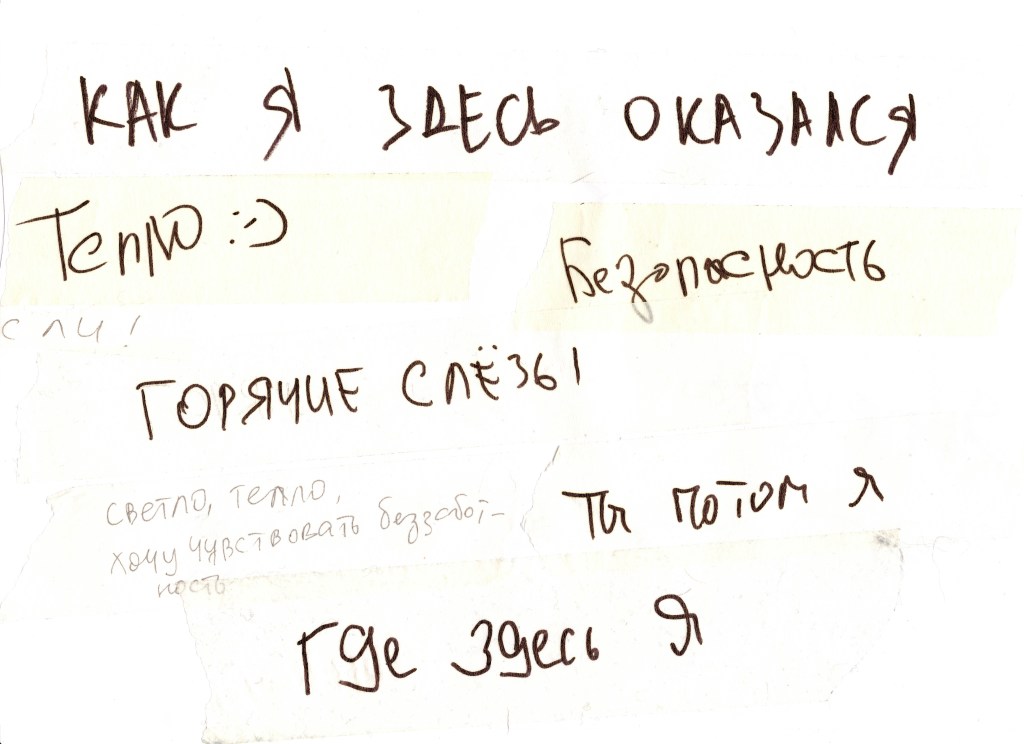 КАК Я ЗДЕСЬ ОКАЗАЛСЯ
Тепло :-)
Безопасность
СЛИ!
ГОРЯЧИЕ СЛЁЗЫ
светло, тепло,
хочу чувствовать беззабот-
ность
ты потом я
где здесь я